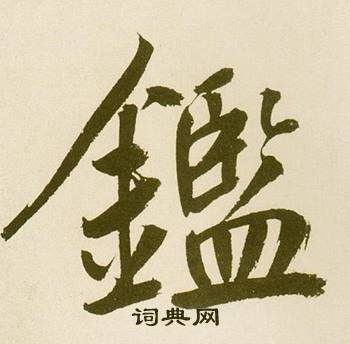 鑑
词典网